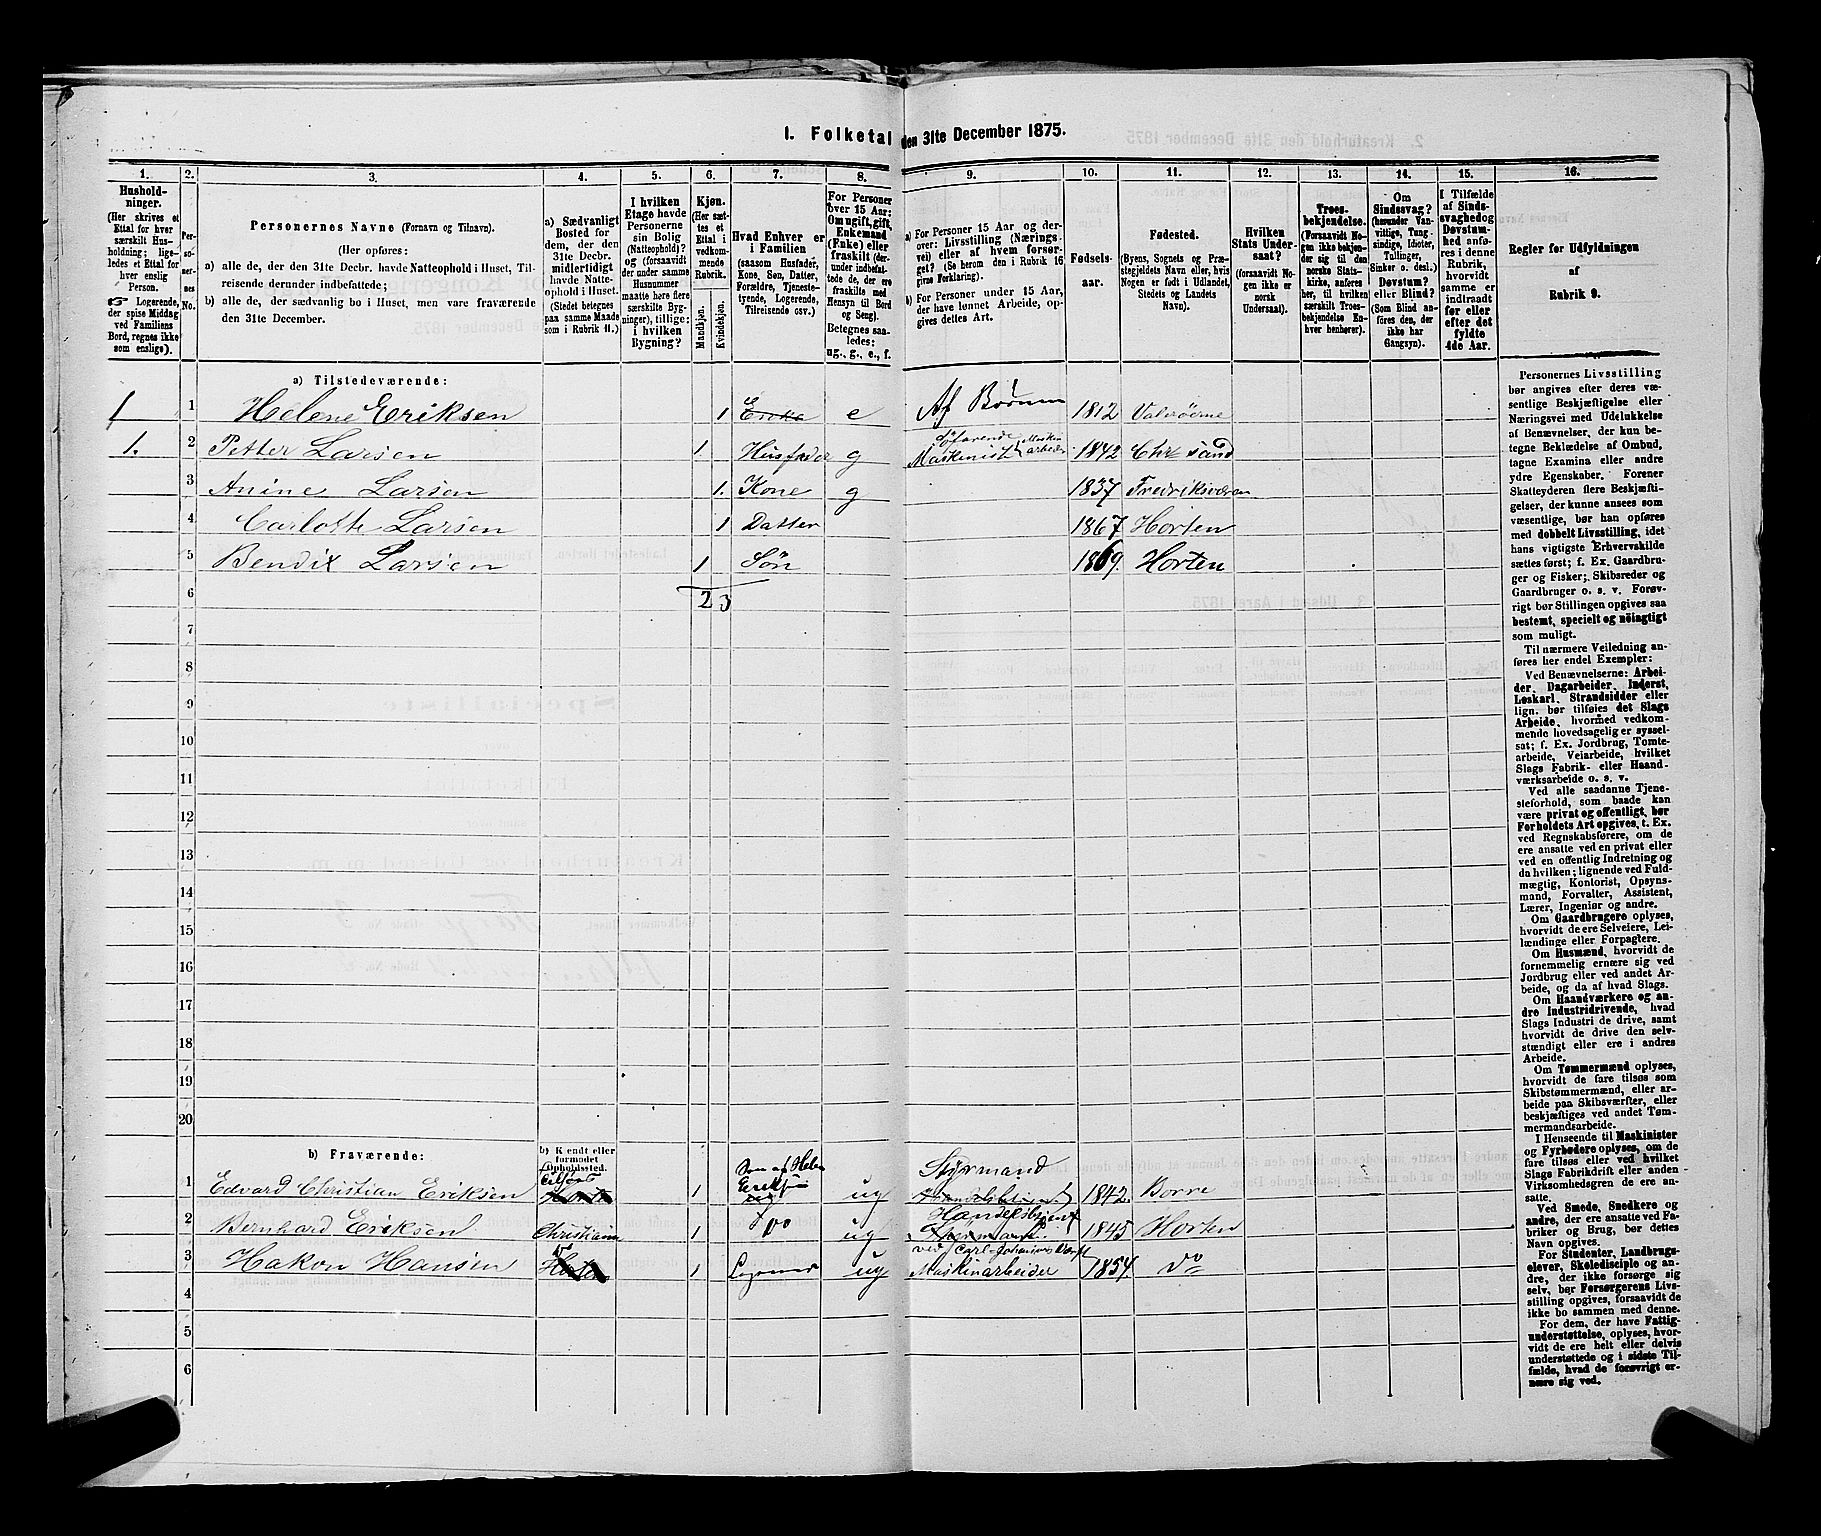 1. Folketal den 31te December 1875.
1.
Hushold-
ninger.
(Her skrives et
Ettal for hver
særskilt Hus-
holdning; lige-
ledes et Ettal for
hver enslig
Person.
Logerende,
der spise Middag
ved Familiens
Bord, regnes ikke
som enslige).
2.
Per-
so-
ner-
nes
No.
3.
Personernes Navne (Fornavn og Tilnavn).
(Her opføres:
a) alle de, der den 31te Decbr. havde Natteophold i Huset, Til-
reisende derunder indbefattede;
b) alle de, der sædvanlig bo i Huset, men vare fraværende
den 31te December.
4.
a) Sædvanligt
Bosted for
dem, der den
31te Decbr.
midlertidigt
havde Natte-
ophold i Huset.
(Stedet betegnes
paa samme Maade
som i Rubrik 11.)
5.
I hvilken
Etage havde
Personerne
sin Bolig
(Natteophold)?
og (forsaavidt
der under samme
Husnummer
maatte høre flere
særskilte Byg-
ninger), tillige:
i hvilken
Bygning?
6.
Kjøn.
(Her sæt-
tes et
Ettal i
vedkom-
mende
Rubrik.
Mandkjøn.
Kvindekjøn.
7.
Hvad Enhver er
i Familien
(saasom Husfader,
Kone, Søn, Datter,
Forældre, Tjeneste-
tyende, Logerende,
Tilreisende osv.)
8.
For Personer
over 15 Aar:
Om ugift, gift,
Enkemand
(Enke) eller
fraskilt (der-
under indbefat-
tede de, der ere
fraskilte med
Hensyn til Bord
og Seng).
Betegnes saa-
ledes:
ug., g., e., f.
9.
a) For Personer 15 Aar og der-
over: Livsstilling (Nærings-
vei) eller af hvem forsør-
get? (Se herom den i Rubrik 16
givne Forklaring).
b) For Personer under 15 Aar,
der have lønnet Arbeide, op-
gives dettes Art.
10.
Fødsels-
aar.
11.
Fødested.
(Byens, Sognets og Præ-
stegjeldets Navn eller, hvis
Nogen er født i Udlandet,
Stedets og Landets
Navn).
12.
Hvilken
Stats Under-
saat?
(forsaavidt No-
gen ikke er
norsk
Undersaat).
13.
Troes-
bekjendelse.
(Forsaavidt No-
gen ikke bekjen-
der sig til den
norske Stats-
kirke, anføres
her, til hvilken
særskilt Troes-
bekjendelse En-
hver henhører).
14.
Om
Sindssvag?
(herunder Van-
vittige, Tung-
sindige, Idioter,
Tullinger,
Sinker o. desl.)
Døvstum?
eller Blind?
(Som Blind an-
føres den, der
ikke har
Gangsyn).
15.
I Tilfælde
af Sinds-
svaghed og
Døvstum-
hed anfø-
res i denne
Rubrik,
hvorvidt
samme er
indtraadt
før eller
efter det
fyldte
4de Aar.
16.
Regler for Udfyldningen
af
Rubrik 9.
a) Tilstedeværende:
1 1 Helene Eriksen 1 Enke e Af Børnene 1812
1. 2 Petter Larsen 1 Husfader g Søfarende Maskinist Maskinarbeider 1842 Chr sand
3 Anine Larsen 1. Kone g 1837 Fredriksværn
4 Carlotte Larsen 1 Datter 1867 Horten
5 Bendix Larsen 1 Søn 1869. Horten
6 2 3
7
8
9
10
11
12
13
14
15
16
17
18
19
20
b) Fraværende:
b) Kjendt eller
formodet
Opholdssted.
1 Edvard Christian Eriksen 1 Søn af Helene Eriksen ug Styrmand 1842. Borre
2 Bernhard Eriksen Christiania 1 Do ug Handelsbetjent 1845 Horten
3 Hakon Hansen Horten 1 Logerend ug ved Carl-Johansværn Maskinarbeider 1854. Do
4
5
6
Personernes Livsstilling
bør angives efter deres væ-
sentlige Beskjæftigelse eller
Næringsvei med Udelukkelse
af Benævnelser, der kun be-
tegne Beklædelse af Ombud,
tagne Examina eller andre
ydre Egenskaber. Forener
Skatteyderen flere Beskjæfti-
gelser, der kunne ansees som
væsentlige, bør han opføres
med dobbelt Livsstilling, idet
hans vigtigste Erhvervskilde
sættes først; f. Ex. Gaardbru-
ger og Fisker; Skibsreder og
Gaardbruger o. s. v. Forøv-
rigt bør Stillingen opgives saa
bestemt, specielt og nøiagtigt
som muligt.
Til nærmere Veiledning an-
føres her endel Exempler:
Ved Benævnelserne: Arbei-
der, Dagarbeider, Inderst,
Løskarl, Strandsidder eller
lign. bør tilføies det Slags
Arbeide, hvormed vedkom-
mende hovedsagelig er syssel-
sat; f. Ex. Jordbrug, Tomte-
arbeide, Veiarbeide, hvilket
Slags Fabrik- eller Haand-
værksarbeide o. s. v.
Ved alle saadanne Tjene-
steforhold, som baade kan
være privat og offentligt, bør
Forholdets Art opgives, t. Ex.
ved Regnskabsførere, om de
ere ansatte ved en privat eller
ved en offentlig Indretning og
da hvilken; lignende ved Fuld-
mægtig, Kontorist, Opsyns-
mand, Forvalter, Assistent,
Lærer, Ingeniør og andre.
Om Gaardbrugere oplyses,
hvorvidt de ere Selveiere, Lei-
lændinge eller Forpagtere.
Om Husmænd, hvorvidt de
fornemmelig ernære sig ved
Jordbrug eller ved andet Ar-
beide, og da af hvad Slags.
Om Haandværkere og an-
dre Industridrivende, hvad
Slags Industri de drive, samt
hvorvidt de drive den selv-
stændigt eller ere i andres
Arbeide.
Om Tømmermænd oplyses,
hvorvidt de fare tilsøs som
Skibstømmermænd, eller ar-
beide paa Skibsværfter, eller
beskjæftiges ved andet Tøm-
mermandsarbeide.
I Henseende til Maskinister
og Fyrbødere oplyses, om de
fare tilsøs eller ved hvilket
Slags Fabrikdrift eller anden
Virksomhedsgren de ere an-
satte.
Ved Smede, Snedkere og
andre, der ere ansatte ved Fa-
briker og Brug, bør dettes
Navn opgives.
For Studenter, Landbrugs-
elever, Skoledisciple og an-
dre, der ikke forsørge sig
selv, bør Forsørgerens Livs-
stilling opgives, forsaavidt de
ikke bo sammen med denne.
For dem, der have Fattig-
understøttelse, oplyses, hvor-
vidt de ere helt eller delvis
understøttede og i sidste Til-
fælde, hvad de forøvrigt er-
nære sig ved.